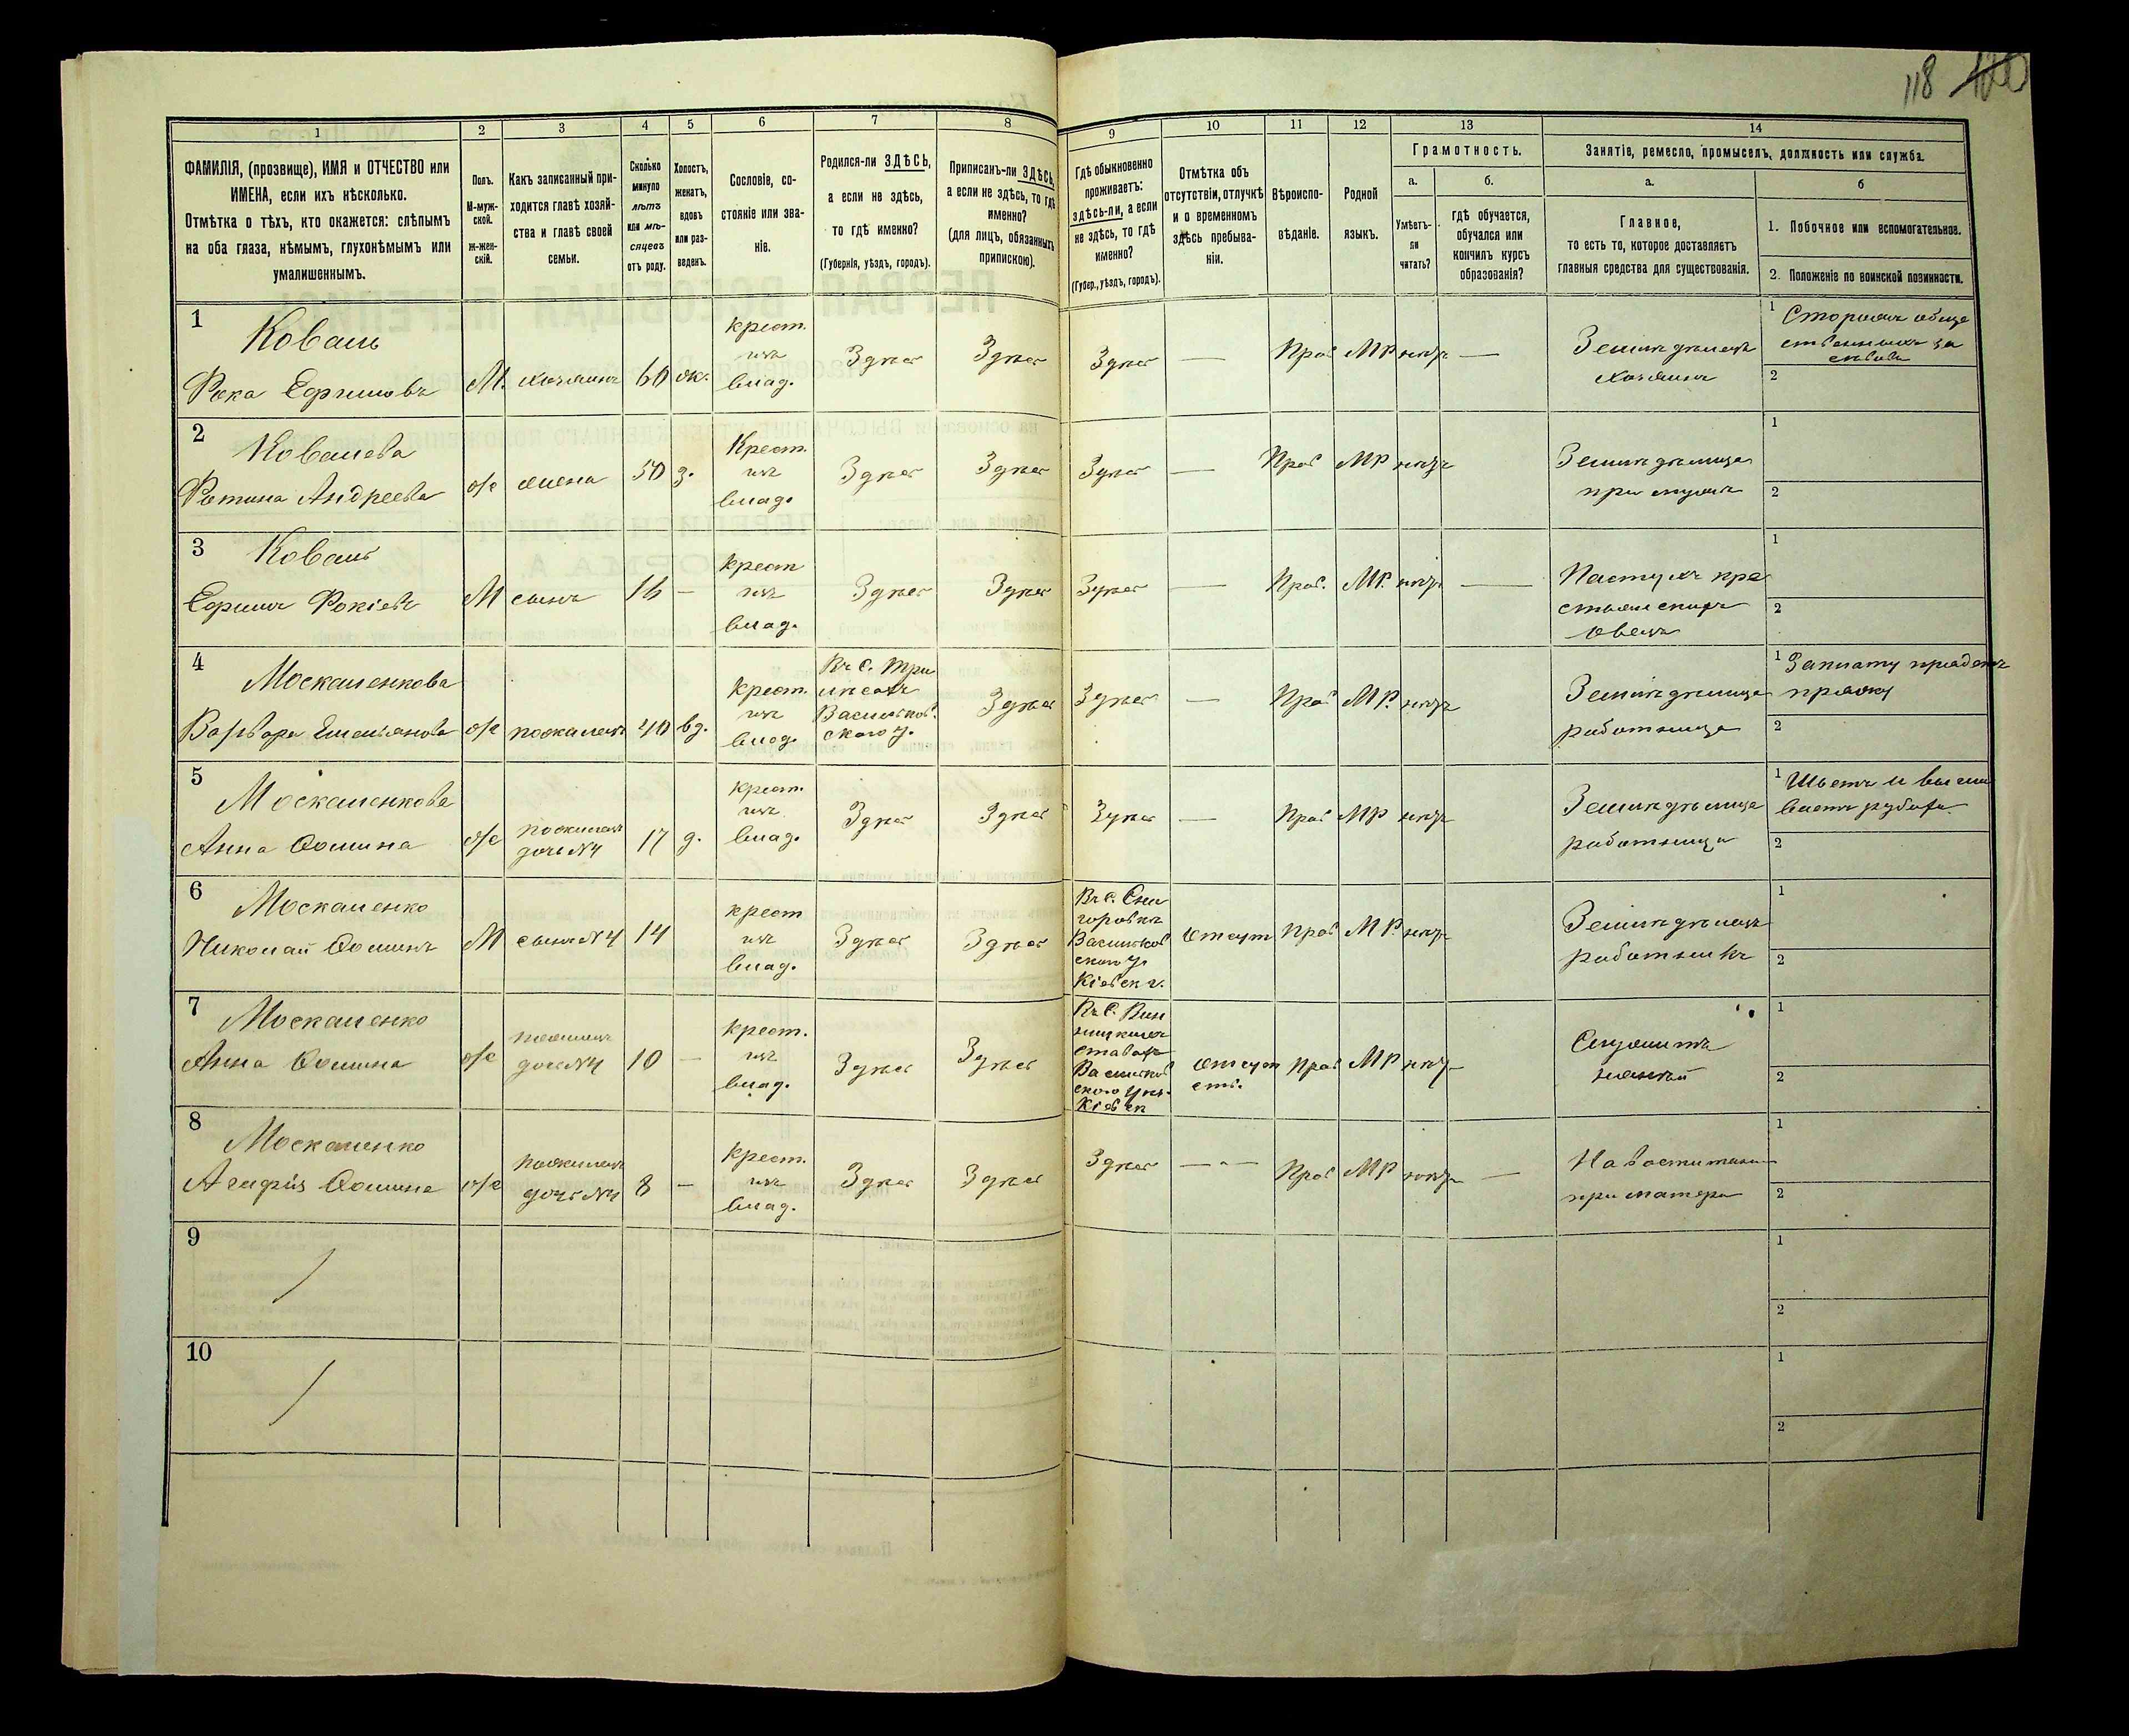 118 100
1 2 3 4 5 6 7 8 9 10 11 12 13 14
ФАМИЛІЯ, (прозвище), ИМЯ и ОТЧЕСТВО или
ИМЕНА, если ихъ нѣсколько.
Отмѣтка о тѣхъ, кто окажется: слѣпымъ
на оба глаза, нѣмымъ, глухонѣмымъ или
умалишеннымъ.
Полъ.
М-муж-
ской.
Ж-жен-
скій.
Какъ записанный при-
ходится главѣ хозяй-
ства и главѣ своей
семьи.
Сколько
минуло
лѣтъ
или мѣ-
сяцевъ
отъ роду.
Холостъ,
женатъ,
вдовъ
или раз-
веденъ.
Сословіе, со-
стояніе или зва-
ніе.
Родился-ли ЗДѢСЬ,
а если не здѣсь,
то гдѣ именно?
(Губернія, уѣздъ, городъ).
Приписанъ-ли ЗДѢСЬ,
а если не здѣсь, то гдѣ
именно?
(для лицъ, обязанныхъ
припискою).
Гдѣ обыкновенно
проживаетъ:
здѣсь-ли, а если
не здѣсь, то гдѣ
именно?
(Губер., уѣздъ, городъ).
Отмѣтка объ
отсутствіи, отлучкѣ
и о временномъ
здѣсь пребыва-
ніи.
Вѣроиспо-
вѣданіе.
Родной
языкъ.
Грамотность.
а.
Умѣетъ-
ли
читать?
б.
гдѣ обучается,
обучался или
кончилъ курсъ
образованія?
Занятіе, ремесло, промыселъ, должность или служба.
а.
Главное,
то есть то, которое доставляетъ
главныя средства для существованія.
б
1. Побочное или вспомогательное.
2. Положеніе по воинской повинности.
1
Коваль
Фока Ефимовъ
М. хозяинъ 60 ж.
крест.
изъ
влад.
Здѣсь Здѣсь Здѣсь — Прав МР нѣтъ —
Земледѣлецъ
хозяинъ
1 Сторожъ обще
ственныхъ за
2
2
Ковалева
Фотина Андреева
ж жена 50 з.
Крест.
изъ
влад.
Здѣсь Здѣсь Здѣсь — Прав МР нѣтъ
Земледѣлица
при мужѣ
1
2
3
Коваль
Ефимъ Фокіевъ
М сынъ 16 —
крест
изъ
влад.
Здѣсь Здѣсь Здѣсь — Прав. МР. нѣтъ —
Пастухъ кре
стьянскихъ
овецъ
1
2
4
Москаленкова
Варвара Емельянова
ж 40 вд.
крест.
изъ
влад.
Въ с. Три
лѣсахъ
Васильков.
скаго у.
Здѣсь Здѣсь — Прав МР. нѣтъ
Земледѣлица
работница
1 Заплату прядетъ
пряжу
2
5
Москаленкова
Анна Фомина
ж
дочь №4
17 д.
крест.
изъ
влад.
Здѣсь Здѣсь Здѣсь — Прав МР нѣтъ
Земледѣлица
работница
1 Шьетъ и выши
ваетъ рубахи
2
6
Москаленко
Николай Фоминъ
М сынъ №4 14
крест
изъ
влад.
Здѣсь Здѣсь
Въ с. Сни
горовкѣ
Васильков
скаго у.
Кіевск г.
Отсут Прав МР. нѣтъ
Земледѣлецъ
работникъ
1
2
7
Москаленко
Анна Фомина
ж
дочь №4
10 —
крест.
изъ
влад.
Здѣсь Здѣсь
Въ с. Вин
ницкихъ
ставахъ
Васильков
скаго уѣз.
Кіевск
Отсут
ств.
Прав МР нѣтъ
Служитъ
нянькой
1
2
8
Москаленко
Агафія Фомина
ж
дочь №4
8 —
крест.
изъ
влад.
Здѣсь Здѣсь Здѣсь — Прав МР нѣтъ —
На воспитаніи
при матери
1
2
9
1
2
10
1
2